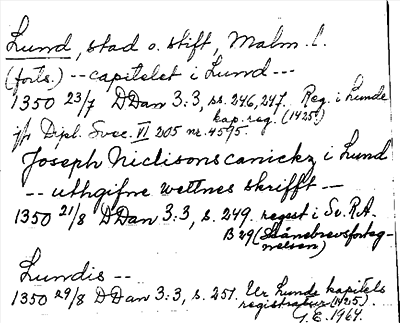 Lund, stad o. stift, Malm. l.
(forts.) -- capitelet i Lund ---
1350 23/7 DDan 3:3, ss. 246, 247. Reg. i Lunde
kap. reg. (1425)
jfr Dipl. Svec. VI 205 nr. 4595.
Joseph Niclisons canickz i Lund
-- uthgifne wettnes skrifft --
1350 21/8 DDan 3:3, s. 249. regest i Sv. R.A.
B 29 (Skånebrevsforteg-
nelsen)
Lundis --
1350 29/8 DDan 3:3, s. 251. Ur Lunde kapitels
registratur (1425).
G.E. 1964.